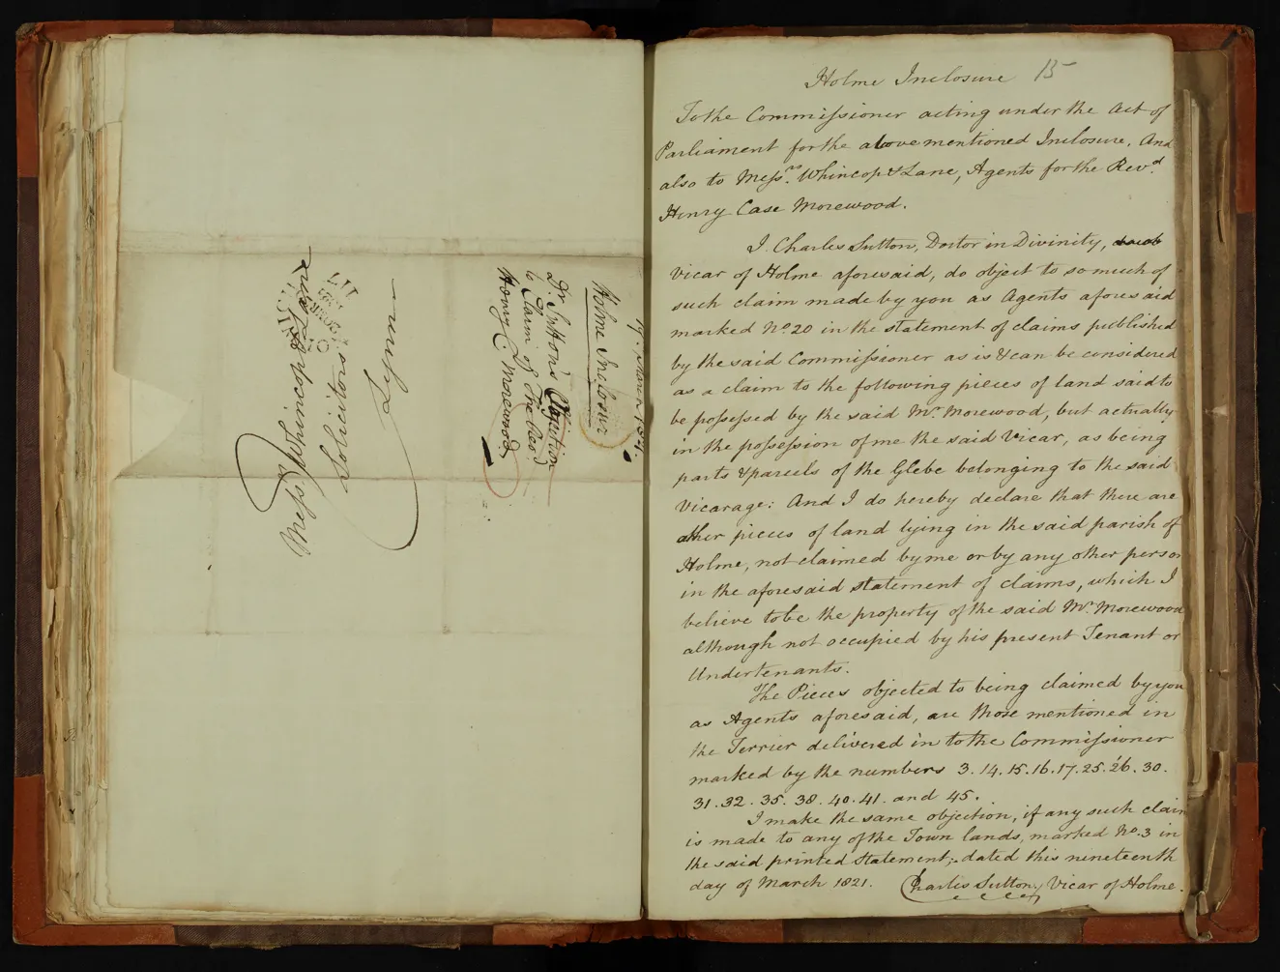 Messrs Whincop & Lane
Solicitors
Lynn
19 March 1821.
Holme Inclosure
Dr Sutton's Objection
to Claim of The Revd
Henry C. Morewood
Holme Inclosure 15
To the Commissioner acting under the Act of
Parliament for the above mentioned Inclosure, And
also to Messrs. Whincop & Lane, Agents for the Revd.
Henry Case Morewood.
I, Charles Sutton, Doctor in Divinity,
Vicar of Holme aforesaid, do object to so much of
such claim made by you as Agents aforesaid
marked No. 20 in the statement of claims published
by the said Commissioner as is & can be considered
as a claim to the following pieces of land said to
be possessed by the said Mr. Morewood, but actually
in the possession of me the said Vicar, as being
parts & parcels of the Glebe belonging to the said
Vicarage: And I do hereby declare that there are
other pieces of land lying in the said parish of
Holme, not claimed by me or by any other person
in the aforesaid statement of claims, which I
believe to be the property of the said Mr. Morewood
although not occupied by his present Tenant or
Undertenants.
The Pieces objected to being claimed by you
as Agents aforesaid, are those mentioned in
the Terrier delivered in to the Commissioner
marked by the numbers 3. 14. 15. 16. 17. 25. 26. 30.
31. 32. 35. 38. 40. 41. and 45.
I make the same objection, if any such claim
is made to any of the Town lands, marked No. 3 in
the said printed statement; dated this nineteenth
day of March 1821. Charles Sutton, Vicar of Holme.